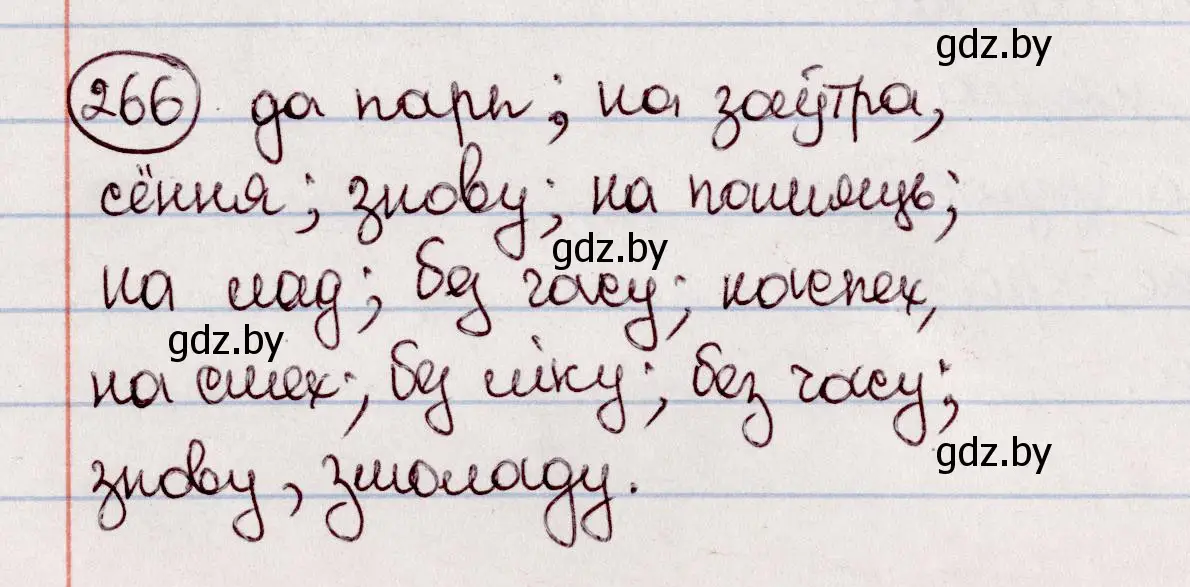 gdz.by
266 да пары; на заўтра,
сёння; знову; на помяць;
gdz.by
на лад; без часу; наспех,
gdz.by
на смех; без ліку; без часу;
gdz.by
знову, змоладу.